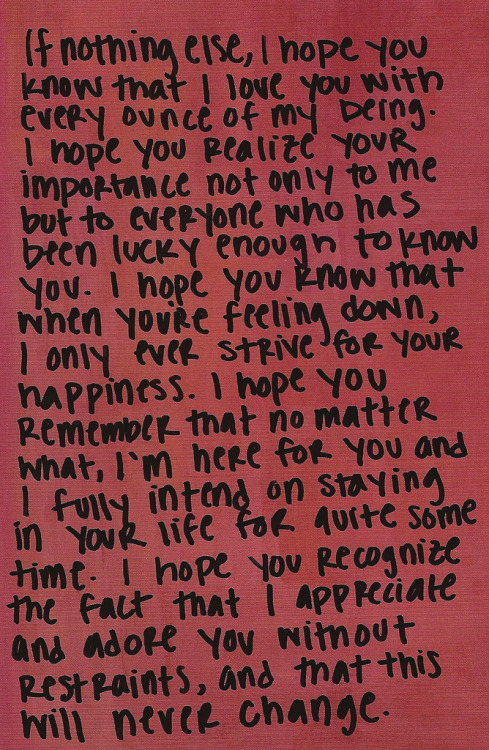 If nothing else, I hope you
know that I love you with
every ounce of my being.
I hope you realize your
importance not only to me
but to everyone who has
been lucky enough to know
you. I hope you know that
when you're feeling down,
I only ever strive for your
happiness. I hope you
remember that no matter
what, I'm here for you and
I fully intend on staying
in your life for quite some
time. I hope you recognize
the fact that I appreciate
and adore you without
restraints, and that this
will never change.